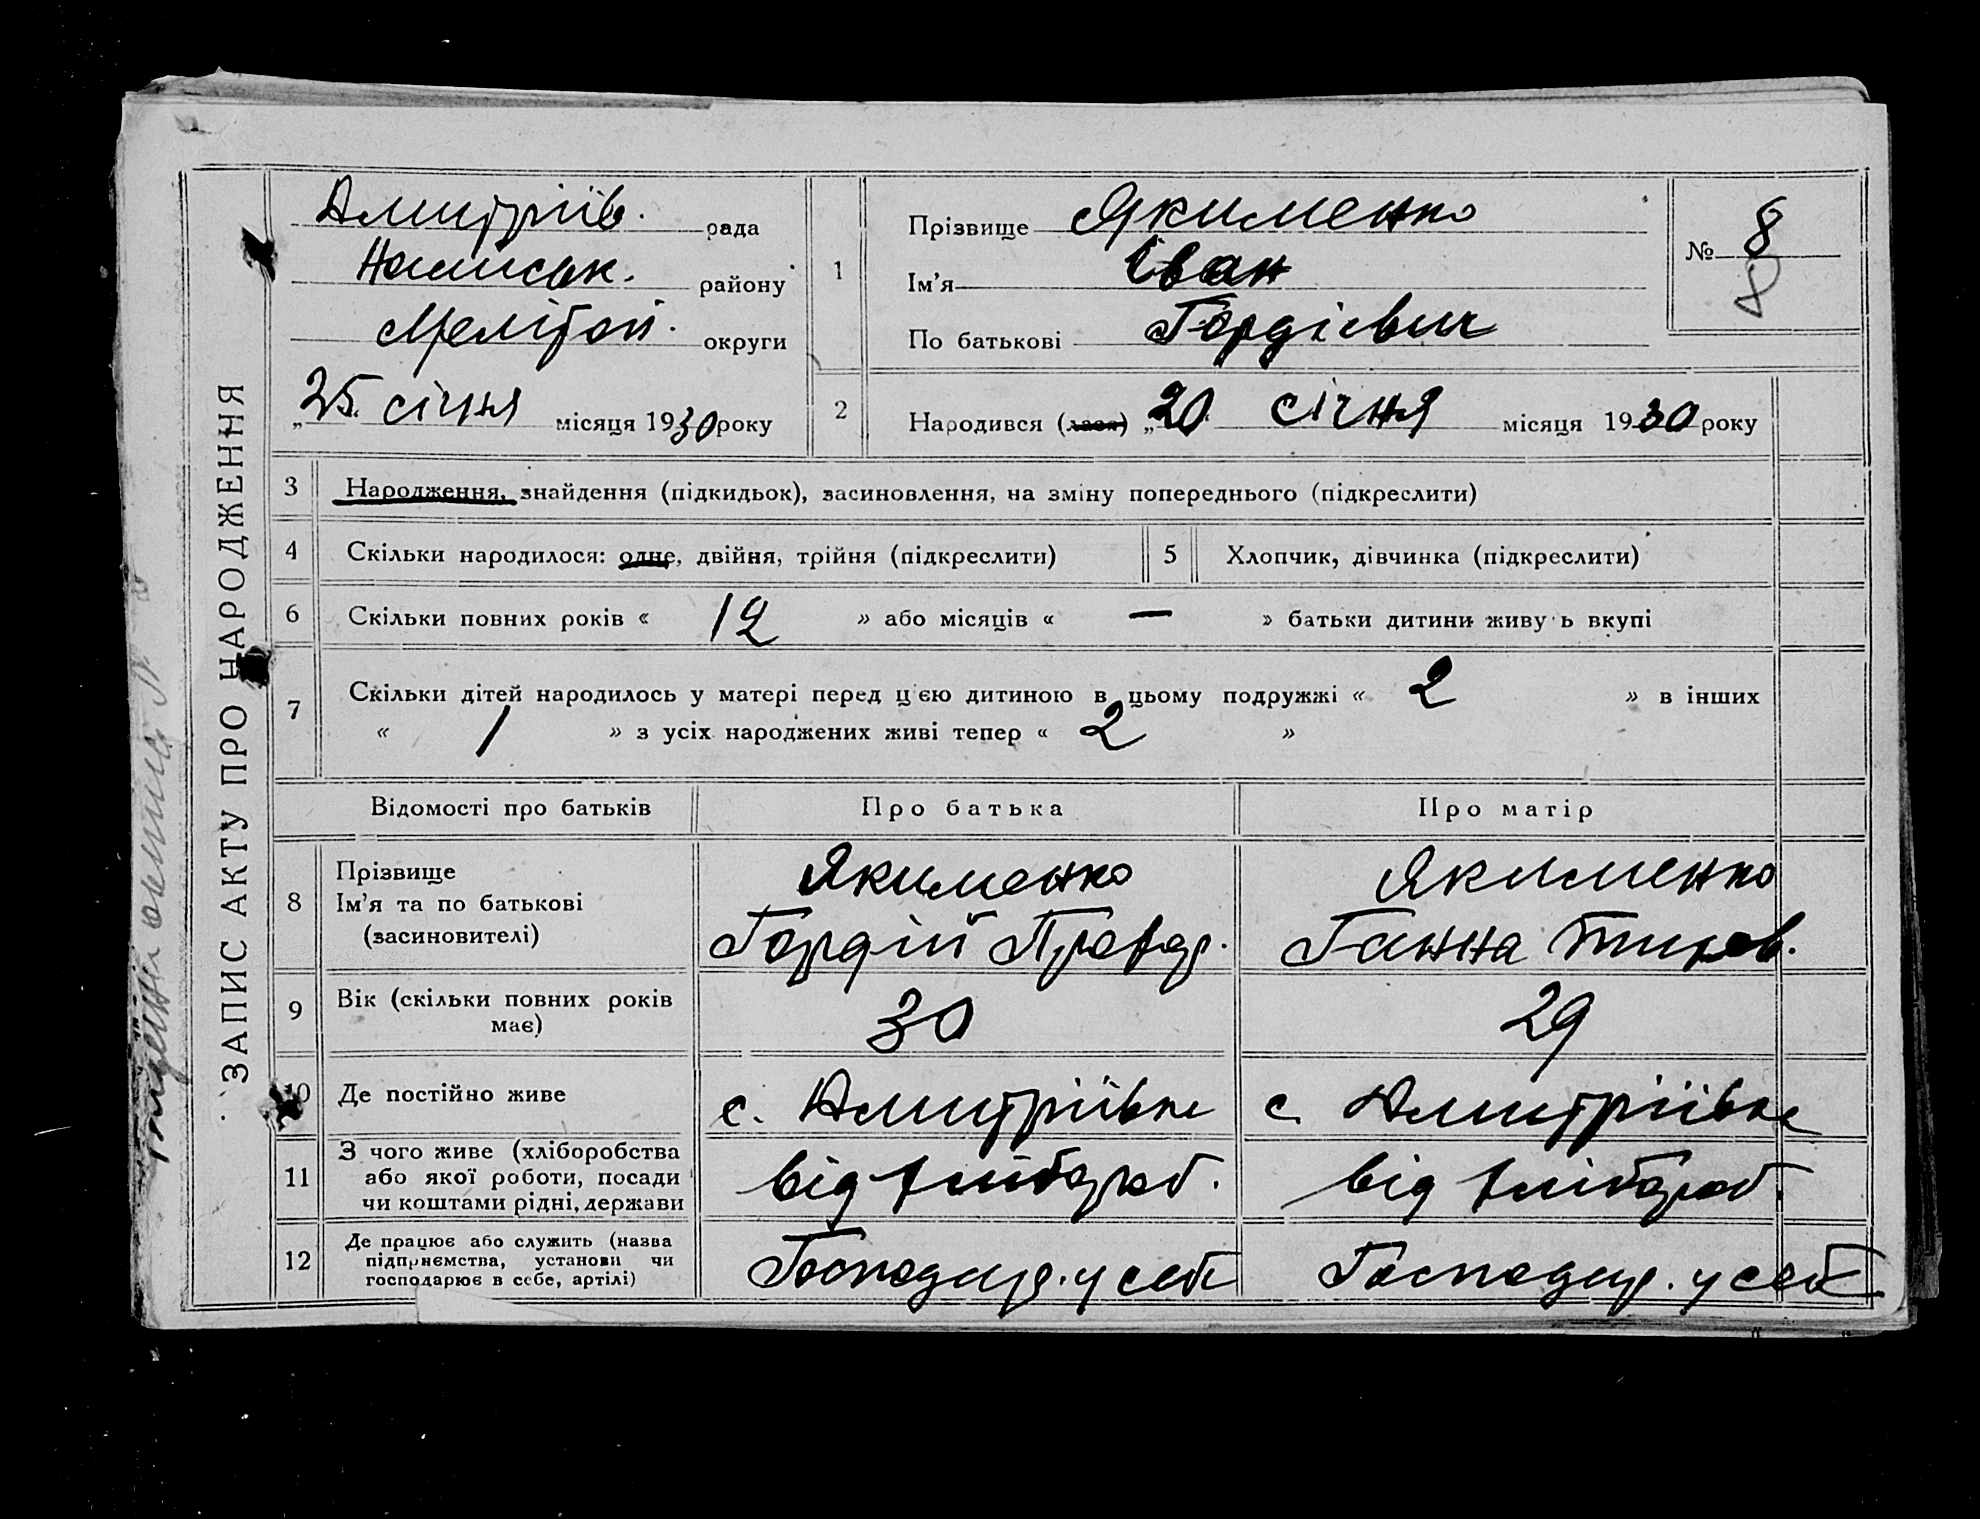 ЗАПИС АКТУ ПРО НАРОДЖЕННЯ
Дмитріїв. рада
району
Мелітоп. округи
„25. січня місяця 1930 року
1
Прізвище Якименко
Ім'я Іван
По батькові Гордієвич
№ 8
8
2
Народився (лася) „20 січня місяця 1930 року
3 Народження, знайдення (підкидьок), засиновлення, на зміну попереднього (підкреслити)
4 Скільки народилося: одне, двійня, трійня (підкреслити) 5 Хлопчик, дівчинка (підкреслити)
6 Скільки повних років « 12 » або місяців « — » батьки дитини живу ь вкупі
7 Скільки дітей народилось у матері перед цією дитиною в цьому подружжі « 2 » в інших
« 1 » з усіх народжених живі тепер « 2 »
Відомості про батьків Про батька Про матір
8 Прізвище
Ім'я та по батькові
(засиновителі)
Якименко
Гордій
Якименко
Ганна
9 Вік (скільки повних років
має)
30 29
10 Де постійно живе с. Дмитріївка с. Дмитріївка
11 З чого живе (хліборобства
або якої роботи, посади
чи коштами рідні, держави
від хлібороб. від хлібороб.
12 Де працює або служить (назва
підприємства, установи чи
господарює в себе, артілі)
Господар. у себе Господар. у себе